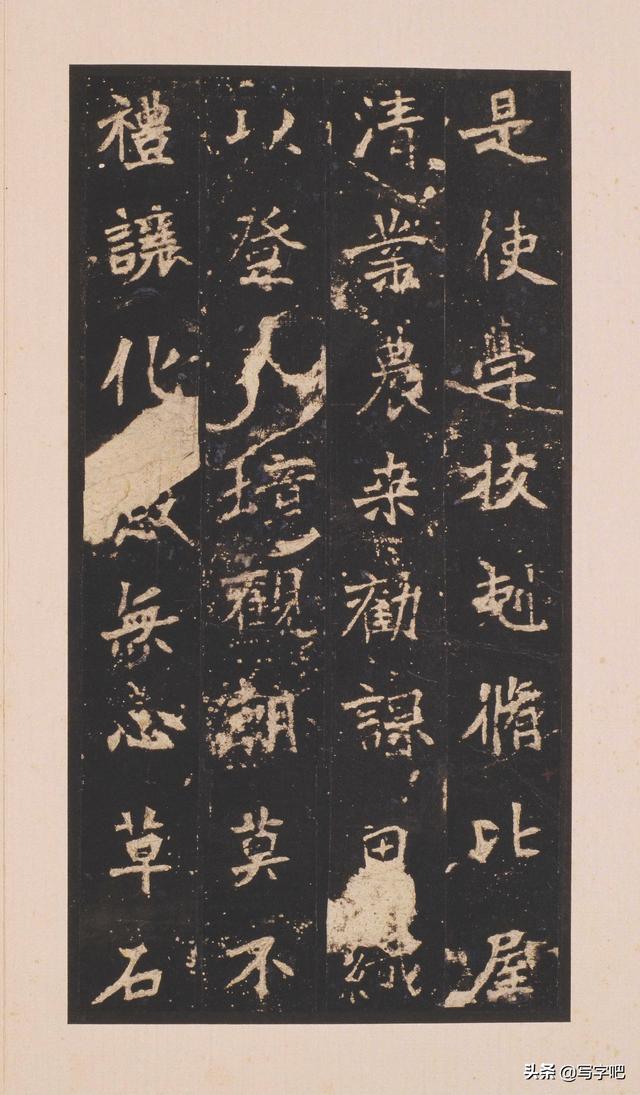 是使學校剋脩比屋
清業農桒勸課田織
以登入境觀朝莫不
禮讓化㪣無忘草石
头条 @写字吧